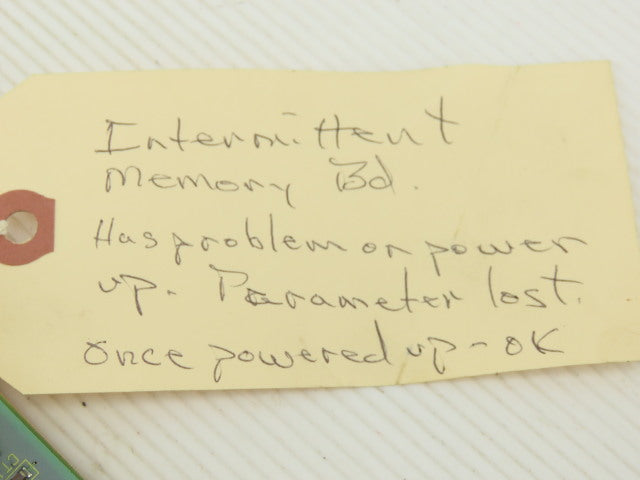 Intermittent
Memory Bd.
Has problem on power
up. Parameter lost.
Once powered up - OK